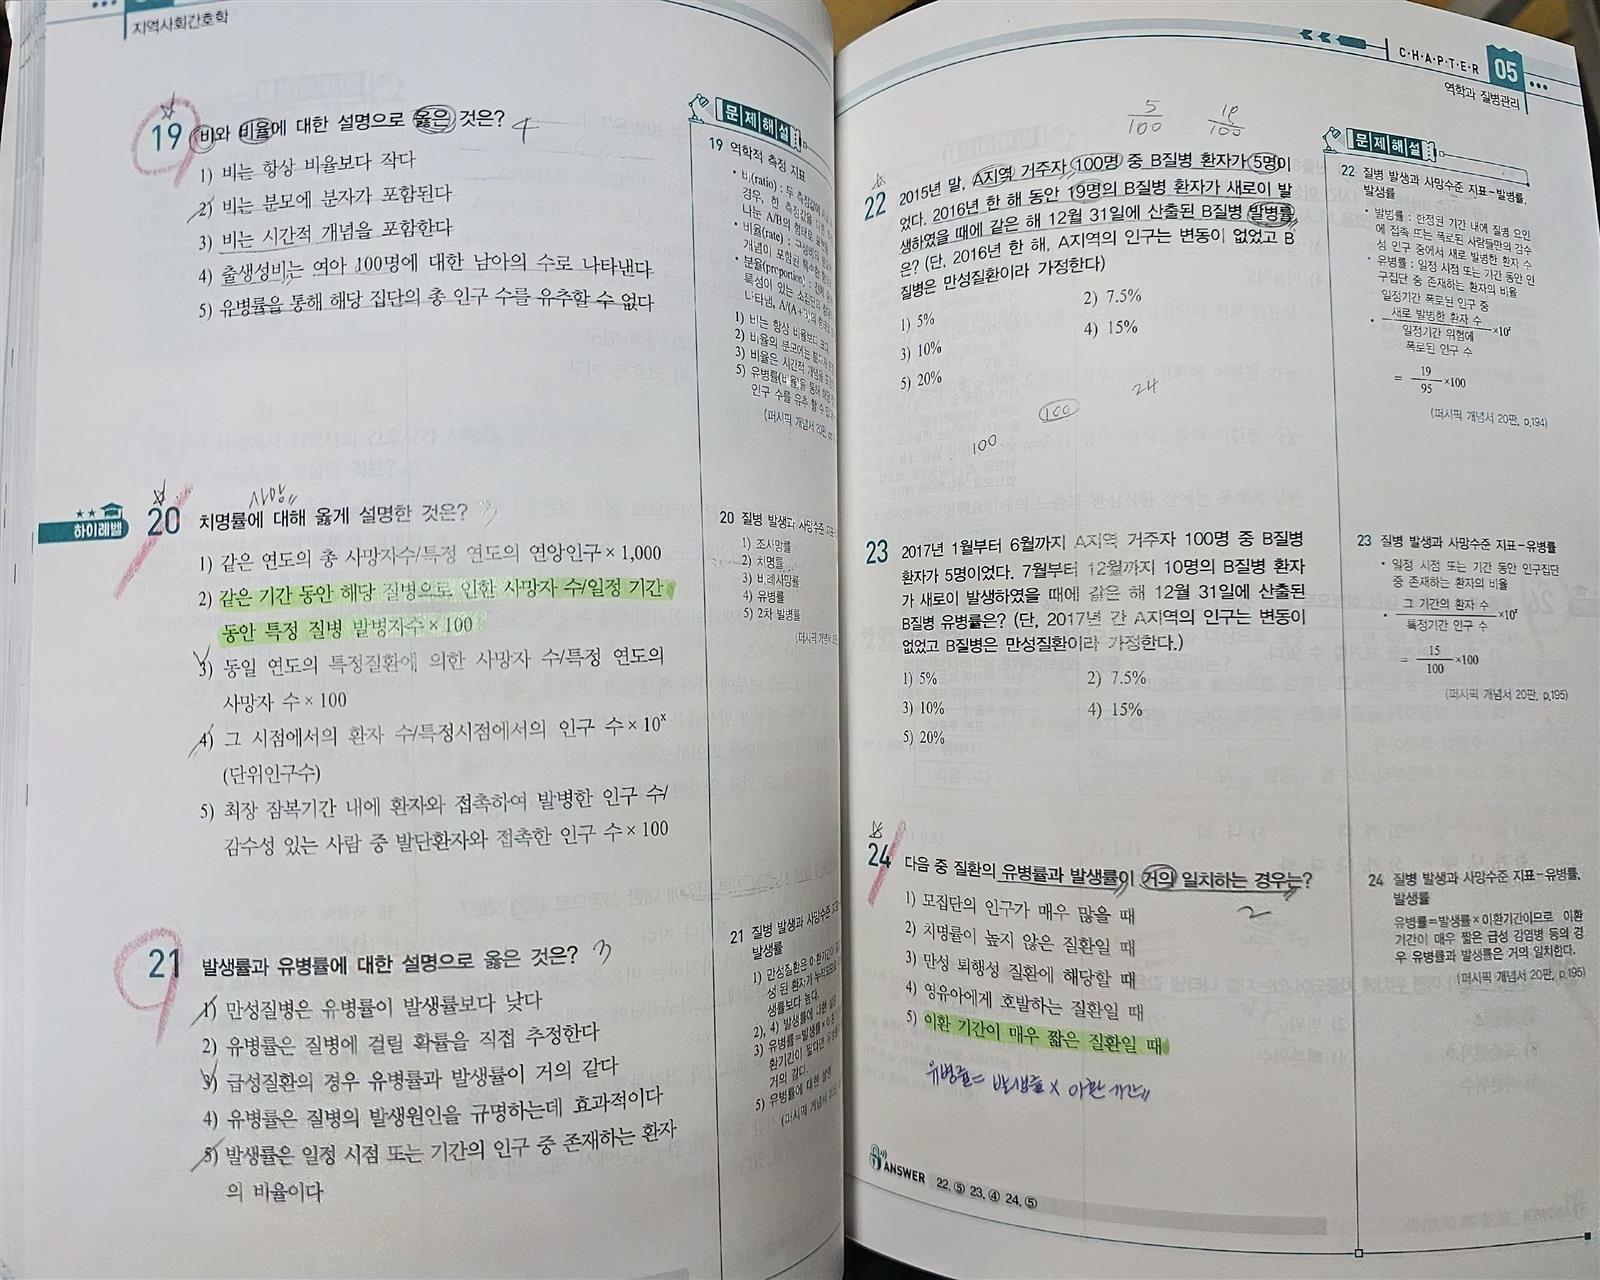 지역사회간호학
19 비와 비율에 대한 설명으로 옳은 것은? 4
1) 비는 항상 비율보다 작다
2) 비는 분모에 분자가 포함된다
3) 비는 시간적 개념을 포함한다
4) 출생성비는 여아 100명에 대한 남아의 수로 나타낸다
5) 유병률을 통해 해당 집단의 총 인구 수를 유추할 수 없다
사망
하이레벨
20 치명률에 대해 옳게 설명한 것은? 3
1) 같은 연도의 총 사망자수/특정 연도의 연앙인구×1,000
2) 같은 기간 동안 해당 질병으로 인한 사망자 수/일정 기간
동안 특정 질병 발병자수×100
3) 동일 연도의 특정질환에 의한 사망자 수/특정 연도의
사망자 수×100
4) 그 시점에서의 환자 수/특정시점에서의 인구 수×10ˣ
(단위인구수)
5) 최장 잠복기간 내에 환자와 접촉하여 발병한 인구 수/
감수성 있는 사람 중 발단환자와 접촉한 인구 수×100
21 발생률과 유병률에 대한 설명으로 옳은 것은? 3
1) 만성질병은 유병률이 발생률보다 낮다
2) 유병률은 질병에 걸릴 확률을 직접 추정한다
3) 급성질환의 경우 유병률과 발생률이 거의 같다
4) 유병률은 질병의 발생원인을 규명하는데 효과적이다
5) 발생률은 일정 시점 또는 기간의 인구 중 존재하는 환자
의 비율이다
문제해설
19 역학적 측정 지표
• 비(ratio) : 두 측정값에
경우, 한 측정값을 다른
나눈 A/B의 형태로
• 비율(rate) :
개념이 포함된 특수한
• 분율(proportion) : 전체
특성이 있는 소집단의
나타냄, A/(A+B)의 형태로
1) 비는 항상 비율보다 크다
2) 비율의 분모에는 분자가
3) 비율은 시간적 개념을
5) 유병률(비율)을 통해 해당
인구 수를 유추 할 수
(퍼시픽 개념서 20판,
20 질병 발생과 사망수준 지표
1) 조사망률
2) 치명률
3) 비례사망률
4) 유병률
5) 2차 발병률
(퍼시픽 개념서
21 질병 발생과 사망수준 지표
발생률
1) 만성질환은 이환기간이 길
생 된 환자가 누적되므로
생률보다 높다.
2), 4) 발생률에 대한 설명
3) 유병률=발생률×이환
환기간이 짧다면 유병률
거의 같다.
5) 유병률에 대한 설명
(퍼시픽 개념서 20판,
CHAPTER 05
역학과 질병관리
5/100
19/100
22 2015년 말, A지역 거주자 100명 중 B질병 환자가 5명이
었다. 2016년 한 해 동안 19명의 B질병 환자가 새로이 발
생하였을 때에 같은 해 12월 31일에 산출된 B질병 발병률
은? (단, 2016년 한 해, A지역의 인구는 변동이 없었고 B
질병은 만성질환이라 가정한다)
1) 5%
2) 7.5%
3) 10%
4) 15%
5) 20%
24
100
100
23 2017년 1월부터 6월까지 A지역 거주자 100명 중 B질병
환자가 5명이었다. 7월부터 12월까지 10명의 B질병 환자
가 새로이 발생하였을 때에 같은 해 12월 31일에 산출된
B질병 유병률은? (단, 2017년 간 A지역의 인구는 변동이
없었고 B질병은 만성질환이라 가정한다.)
1) 5%
2) 7.5%
3) 10%
4) 15%
5) 20%
24 다음 중 질환의 유병률과 발생률이 거의 일치하는 경우는?
2
1) 모집단의 인구가 매우 많을 때
2) 치명률이 높지 않은 질환일 때
3) 만성 퇴행성 질환에 해당할 때
4) 영유아에게 호발하는 질환일 때
5) 이환 기간이 매우 짧은 질환일 때
유병률= 발생률 × 이환 기간
ANSWER 22. ⑤ 23. ④ 24. ⑤
문제해설
22 질병 발생과 사망수준 지표-발병률,
발생률
• 발병률 : 한정된 기간 내에 질병 요인
에 접촉 또는 폭로된 사람들만의 감수
성 인구 중에서 새로 발병한 환자 수
• 유병률 : 일정 시점 또는 기간 동안 인
구집단 중 존재하는 환자의 비율
일정기간 폭로된 인구 중
새로 발병한 환자 수
• ×10ˣ
일정기간 위험에
폭로된 인구 수
= 19/95 ×100
(퍼시픽 개념서 20판, p.194)
23 질병 발생과 사망수준 지표-유병률
• 일정 시점 또는 기간 동안 인구집단
중 존재하는 환자의 비율
• 그 기간의 환자 수/특정기간 인구 수 ×10ˣ
= 15/100 ×100
(퍼시픽 개념서 20판, p.195)
24 질병 발생과 사망수준 지표-유병률,
발생률
유병률=발생률×이환기간이므로 이환
기간이 매우 짧은 급성 감염병 등의 경
우 유병률과 발생률은 거의 일치한다.
(퍼시픽 개념서 20판, p.195)